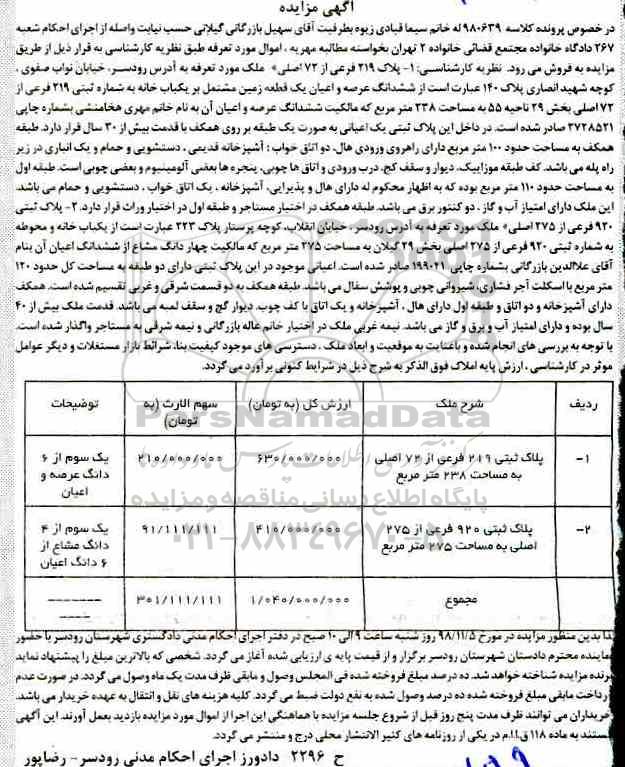 آگهی مزایده
در خصوص پرونده کلاسه ۹۸۰۶۳۹ له خانم سیما قبادی زیوه بطرفیت آقای سهیل بازرگانی گیلانی حسب نیابت واصله از اجرای احکام شعبه
۲۶۷ دادگاه خانواده مجتمع قضائی خانواده ۲ تهران بخواسته مطالبه مهریه ، اموال مورد تعرفه طبق نظریه کارشناسی به قرار ذیل از طریق
مزایده به فروش می رود. نظریه کارشناسی: ۱- پلاک ۲۱۹ فرعی از ۷۲ اصلی» ملک مورد تعرفه به آدرس رودسر، خیابان نواب صفوی ،
کوچه شهید انصاری پلاک ۱۴۰ عبارت است از ششدانگ عرصه و اعیان یک قطعه زمین مشتمل بر یکباب خانه به شماره ثبتی ۲۱۹ فرعی از
۷۲ اصلی بخش ۲۹ ناحیه ۵۵ به مساحت ۲۳۸ متر مربع که مالکیت ششدانگ عرصه و اعیان آن به نام خانم مهری هخامنشی بشماره چاپی
۲۷۲۸۵۲۱ صادر شده است. در داخل این پلاک ثبتی یک اعیانی به صورت یک طبقه بر روی همکف با قدمت بیش از ۳۰ سال قرار دارد. طبقه
همکف به مساحت حدود ۱۰۰ متر مربع دارای راهروی ورودی هال، دو اتاق خواب : آشپزخانه قدیمی ، دستشویی و حمام و یک انباری در زیر
راه پله می باشد. کف طبقه موزاییک، دیوار و سقف گچ، درب ورودی و اتاق ها چوبی، پنجره ها بعضی آلومینیوم و بعضی چوبی است. طبقه اول
به مساحت حدود ۱۱۰ متر مربع بوده که به اظهار محکوم له دارای هال و پذیرایی، آشپزخانه ، یک اتاق خواب ، دستشویی و حمام می باشد.
این ملک دارای امتیاز آب و گاز ، دو کنتور برق می باشد. طبقه همکف در اختیار مستاجر و طبقه اول در اختیار وراث قرار دارد. ۲- پلاک ثبتی
۹۲۰ فرعی از ۲۷۵ اصلی» ملک مورد تعرفه به آدرس رودسر ، خیابان انقلاب، کوچه پرستار پلاک ۲۲۳ عبارت است از یکباب خانه و محوطه
به شماره ثبتی ۹۲۰ فرعی از ۲۷۵ اصلی بخش ۲۹ گیلان به مساحت ۲۷۵ متر مربع که مالکیت چهار دانگ مشاع از ششدانگ اعیان آن بنام
آقای علاالدین بازرگانی بشماره چاپی ۱۹۹۰۲۱ صادر شده است. اعیانی موجود در این پلاک ثبتی دارای دو طبقه به مساحت کل حدود ۱۲۰
متر مربع با اسکلت آجر فشاری، شیروانی چوبی و پوشش سفال می باشد. طبقه همکف به دو قسمت شرقی و غربی تقسیم شده است. همکف
دارای آشپزخانه و دو اتاق و طبقه اول دارای هال ، آشپزخانه و یک اتاق با کف چوب، دیوار گچ و سقف لمبه می باشد. قدمت ملک بیش از ۴۰
سال بوده و دارای امتیاز آب و برق و گاز می باشد. نیمه غربی ملک در اختیار خانم عاله بازرگانی و نیمه شرقی به مستاجر واگذار شده است.
با توجه به بررسی های انجام شده و باعنایت به موقعیت و ابعاد ملک ، دسترسی های موجود کیفیت بنا، شرائط بازار مستغلات و دیگر عوامل
موثر در کارشناسی ، ارزش پایه املاک فوق الذکر به شرح ذیل در شرایط کنونی برآورد می گردد.
ردیف | شرح ملک | ارزش کل (به تومان) | سهم الارث (به تومان) | توضیحات
۱- | پلاک ثبتی ۲۱۹ فرعی از ۷۲ اصلی به مساحت ۲۳۸ متر مربع | ۶۳۰/۰۰۰/۰۰۰ | ۲۱۰/۰۰۰/۰۰۰ | یک سوم از ۶ دانگ عرصه و اعیان
۲- | پلاک ثبتی ۹۲۰ فرعی از ۲۷۵ اصلی به مساحت ۲۷۵ متر مربع | ۴۱۰/۰۰۰/۰۰۰ | ۹۱/۱۱۱/۱۱۱ | یک سوم از ۴ دانگ مشاع از ۶ دانگ اعیان
مجموع | ۱/۰۴۰/۰۰۰/۰۰۰ | ۳۰۱/۱۱۱/۱۱۱ | -------
لذا بدین منظور مزایده در مورخ ۹۸/۱۱/۵ روز شنبه ساعت ۹ الی ۱۰ صبح در دفتر اجرای احکام مدنی دادگستری شهرستان رودسر با حضور
نماینده محترم دادستان شهرستان رودسر برگزار و از قیمت پایه ی ارزیابی شده آغاز می گردد. شخصی که بالاترین مبلغ را پیشنهاد نماید
برنده مزایده شناخته خواهد شد. ده درصد مبلغ فروخته شده فی المجلس وصول و مابقی ظرف مدت یک ماه وصول می گردد. در صورت عدم
پرداخت مابقی مبلغ فروخته شده ده درصد وصول شده به نفع دولت ضبط می گردد. کلیه هزینه های نقل و انتقال به عهده خریدار می باشد.
خریداران می توانند ظرف مدت پنج روز قبل از شروع جلسه مزایده با هماهنگی این اجرا از اموال مورد مزایده بازدید بعمل آورند. این آگهی
مستند به ماده ۱۱۸ ق.ا.ا.م در یکی از روزنامه های کثیر الانتشار محلی درج و منتشر می گردد.
ح ۲۲۹۶ دادورز اجرای احکام مدنی رودسر - رضاپور
ParsNamadData
پایگاه اطلاع رسانی مناقصه و مزایده
۰۲۱-۸۸۳۴۹۶۷۰